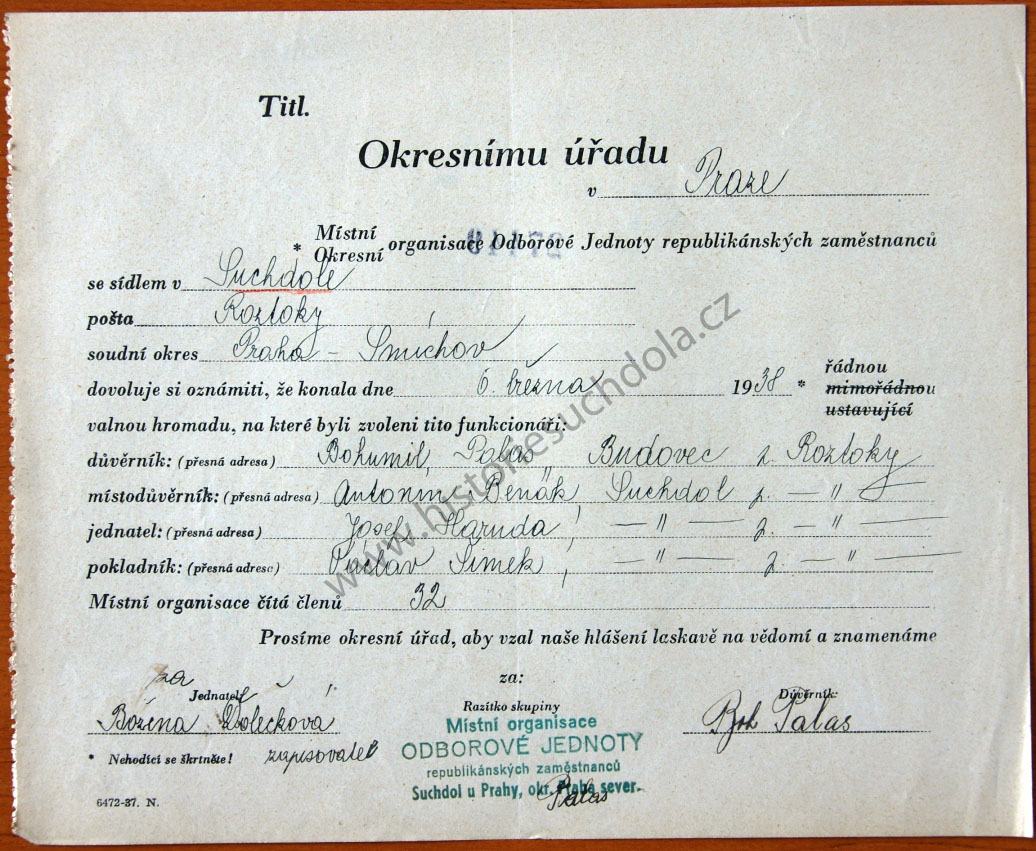 Titl.
Okresnímu úřadu
v Praze
* Místní
Okresní organisace Odborové Jednoty republikánských zaměstnanců
27448
se sídlem v Suchdole
pošta Roztoky
soudní okres Praha - Smíchov
dovoluje si oznámiti, že konala dne 6. března 1938 * řádnou
mimořádnou
ustavující
valnou hromadu, na které byli zvoleni tito funkcionáři:
důvěrník: (přesná adresa) Bohumil Palas, Budovec p. Roztoky
místodůvěrník: (přesná adresa) Antonín Benák, Suchdol p. — " —
jednatel: (přesná adresa) Josef Haruda, — " — p. — " —
pokladník: (přesná adresa) Václav Šimek, — " — p. — " —
Místní organisace čítá členů 32
Prosíme okresní úřad, aby vzal naše hlášení laskavě na vědomí a znamenáme
za za:
Jednatel: Razítko skupiny Důvěrník:
Božena Dolečková Boh Palas
Místní organisace
ODBOROVÉ JEDNOTY
republikánských zaměstnanců
Suchdol u Prahy, okr. Praha sever.
* Nehodící se škrtněte! zapisovatel
Palas
6472-37. N.
www.historiesuchdola.cz